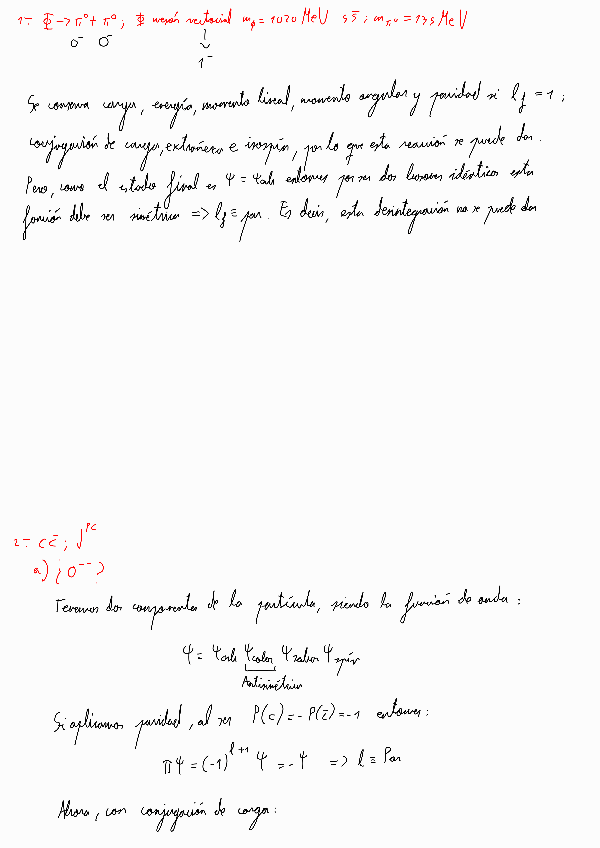 1-. Φ → π⁰ + π⁰ ; Φ mesón vectorial m_φ = 1020 MeV s s̄ ; m_π⁰ = 135 MeV
0⁻ 0⁻ ↓ 1⁻
Se conserva carga, energía, momento lineal, momento angular y paridad si l_f = 1 ;
conjugación de carga, extrañeza e isospín, por lo que esta reacción se puede dar.
Pero, como el estado final es Ψ = Ψorb entonces por ser dos bosones idénticos esta
función debe ser simétrica => l_f ≡ par. Es decir, esta desintegración no se puede dar
2-. c c̄ ; J^PC
a) ¿0⁻⁻?
Tenemos dos componentes de la partícula, siendo la función de onda :
Ψ = Ψorb Ψcolor Ψsabor Ψspín
Antisimétrica
Si aplicamos paridad, al ser P(c) = -P(c̄) = -1 entonces :
ΠΨ = (-1)^{l+1} Ψ = -Ψ => l ≡ Par
Ahora, con conjugación de carga :